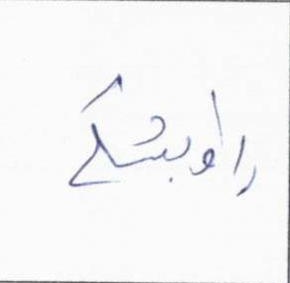 راوبشکی